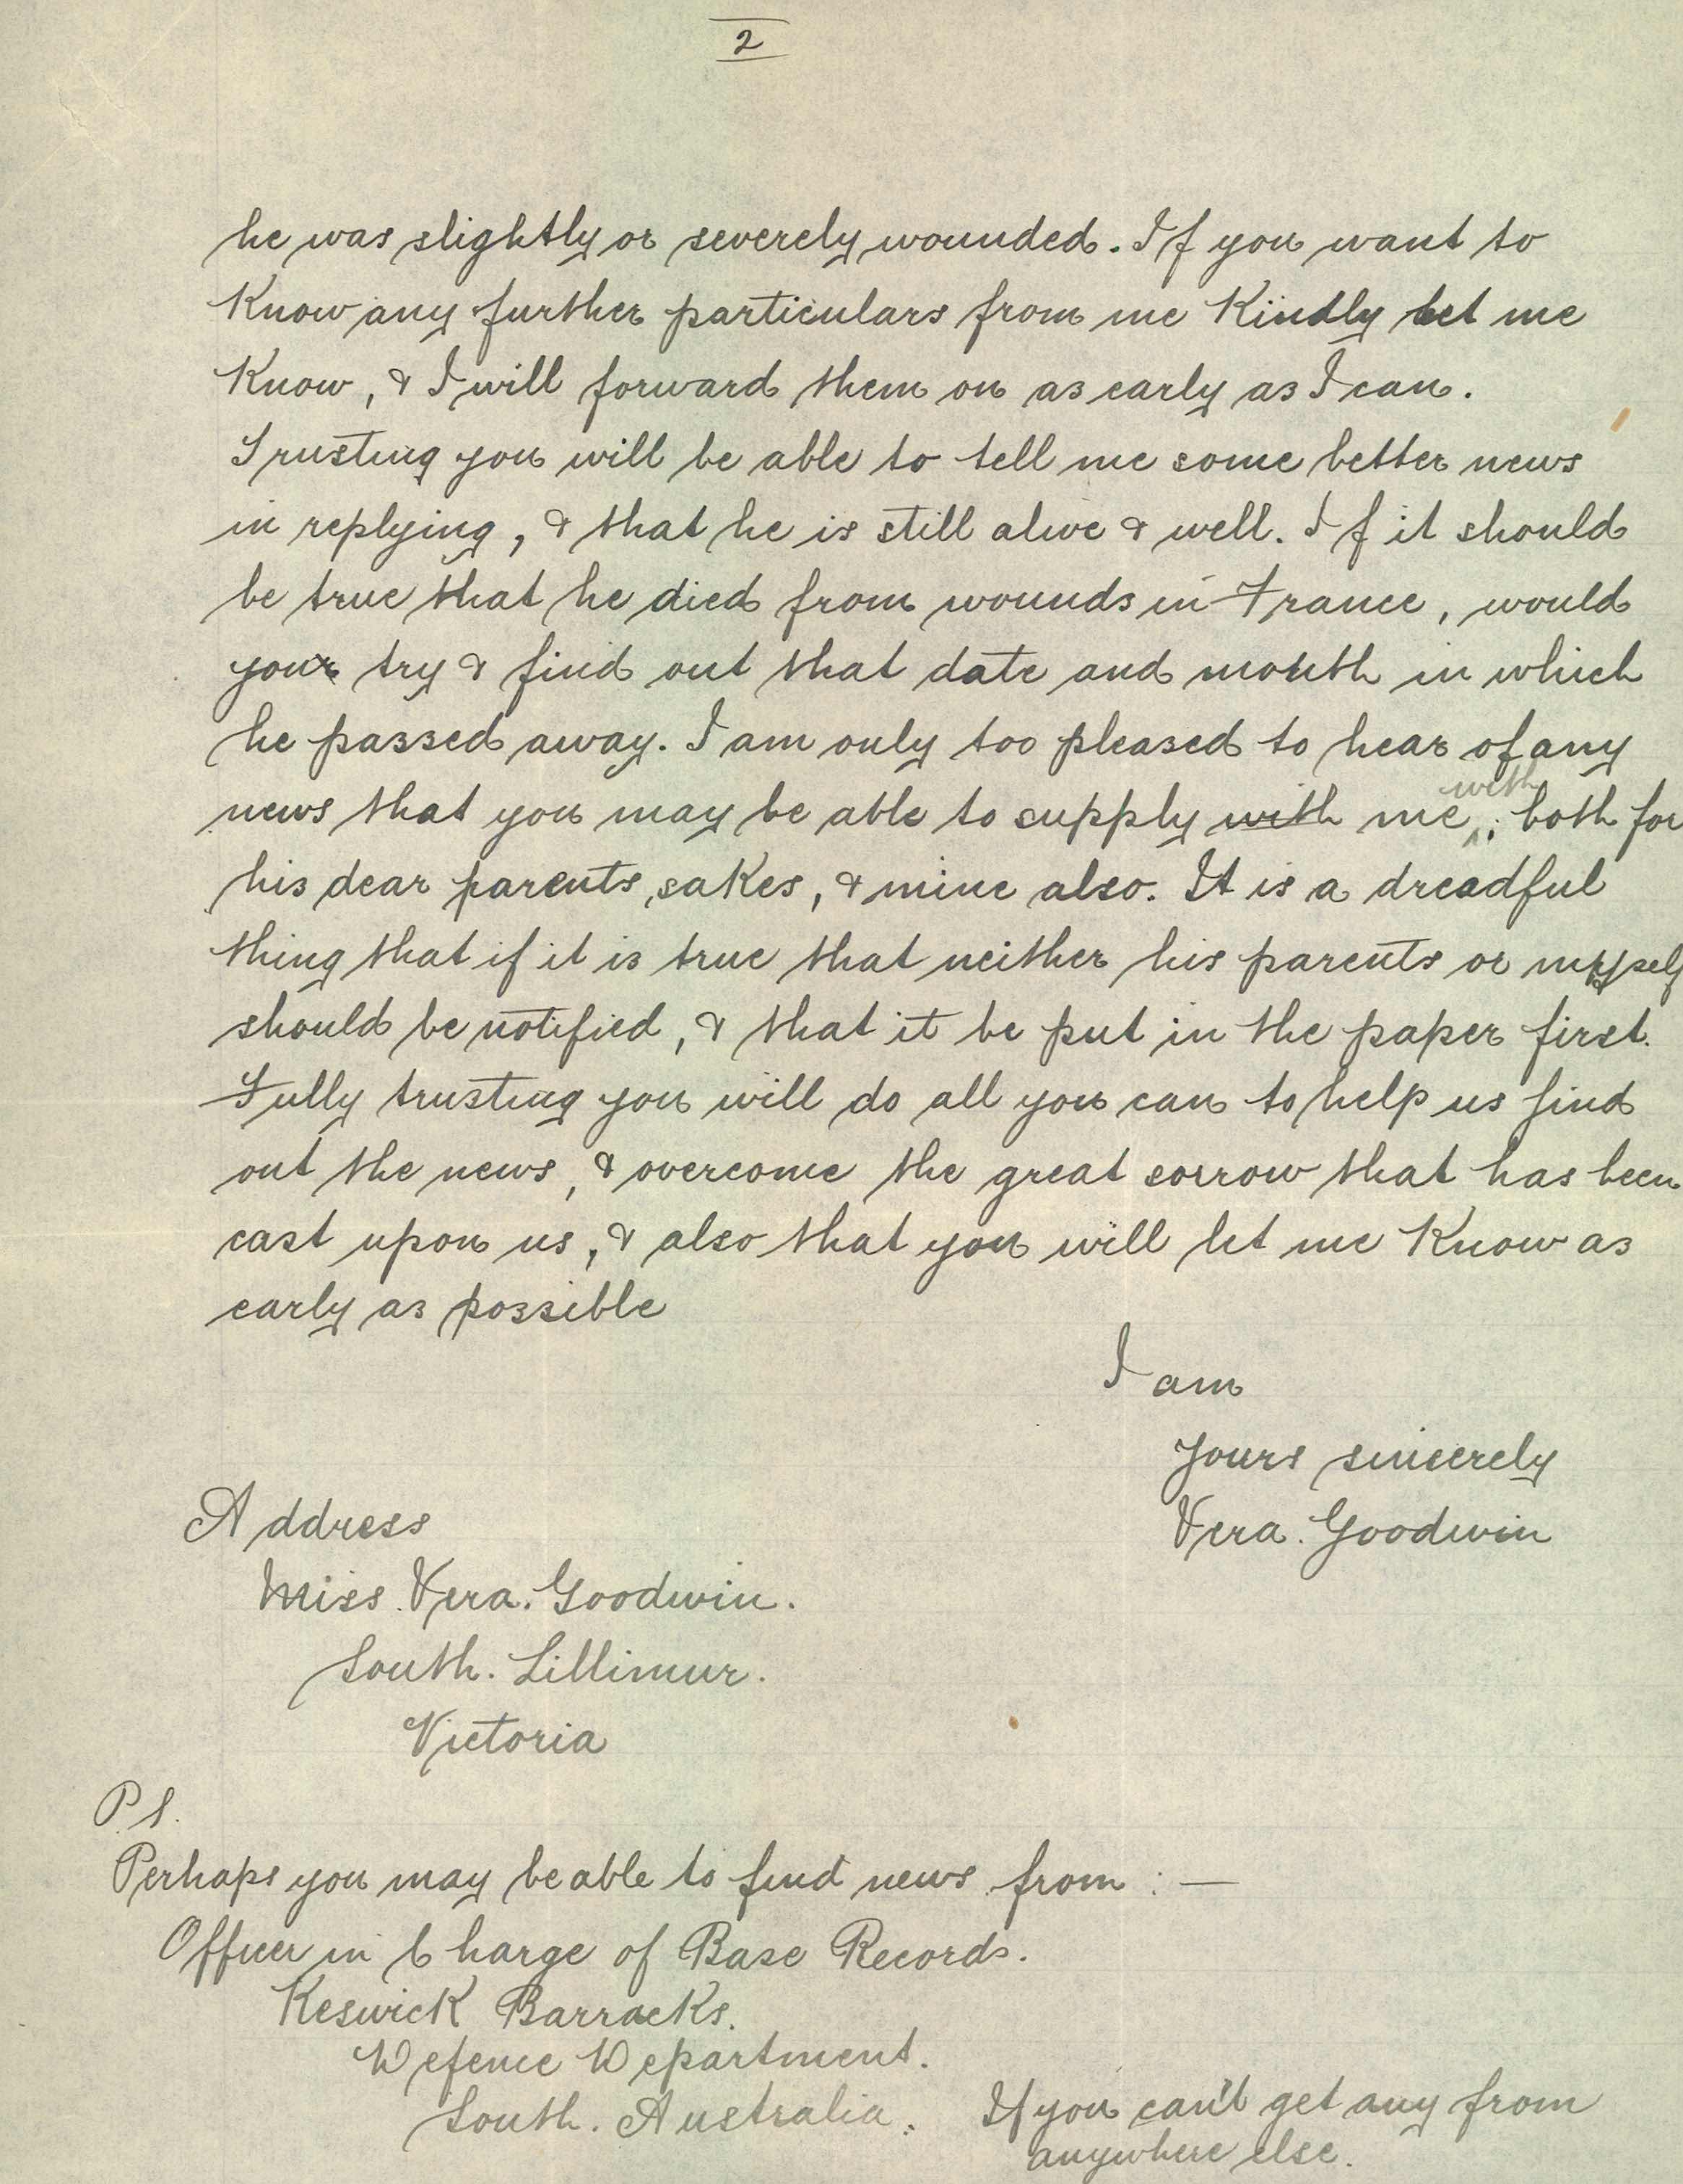 2
he was slightly or severely wounded. If you want to
Know any further particulars from me Kindly let me
Know, & I will forward them on as early as I can.
Trusting you will be able to tell me some better news
in replying, & that he is still alive & well. If it should
be true that he died from wounds in France, would
you try & find out that date and month in which
he passed away. I am only too pleased to hear of any
news that you may be able to supply with me with; both for
his dear parents sakes, & mine also. It is a dreadful
thing that if it is true that neither his parents or myself
should be notified, & that it be put in the paper first.
Fully trusting you will do all you can to help us find
out the news, & overcome the great sorrow that has been
cast upon us, & also that you will let me Know as
early as possible
I am
Yours sincerely
Vera. Goodwin
Address
Miss. Vera. Goodwin.
South. Lillimur.
Victoria
P.S.
Perhaps you may be able to find news from :—
Officer in Charge of Base Records.
Keswick Barracks.
Defence Department.
South. Australia.
If you can't get any from
anywhere else.